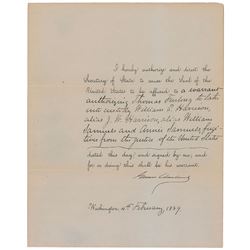 I hereby authorize and direct the
Secretary of State to cause the Seal of the
United States to be affixed to a warrant
authorizing Thomas Furlong to take
into custody William P. Harrison,
alias J. W. Harrison, alias William
Samuels and Annie Samuels, fugi-
tives from the justice of the United States
dated this day, and signed by me; and
for so doing this shall be his warrant.
Grover Cleveland
Washington, 4th February, 1889